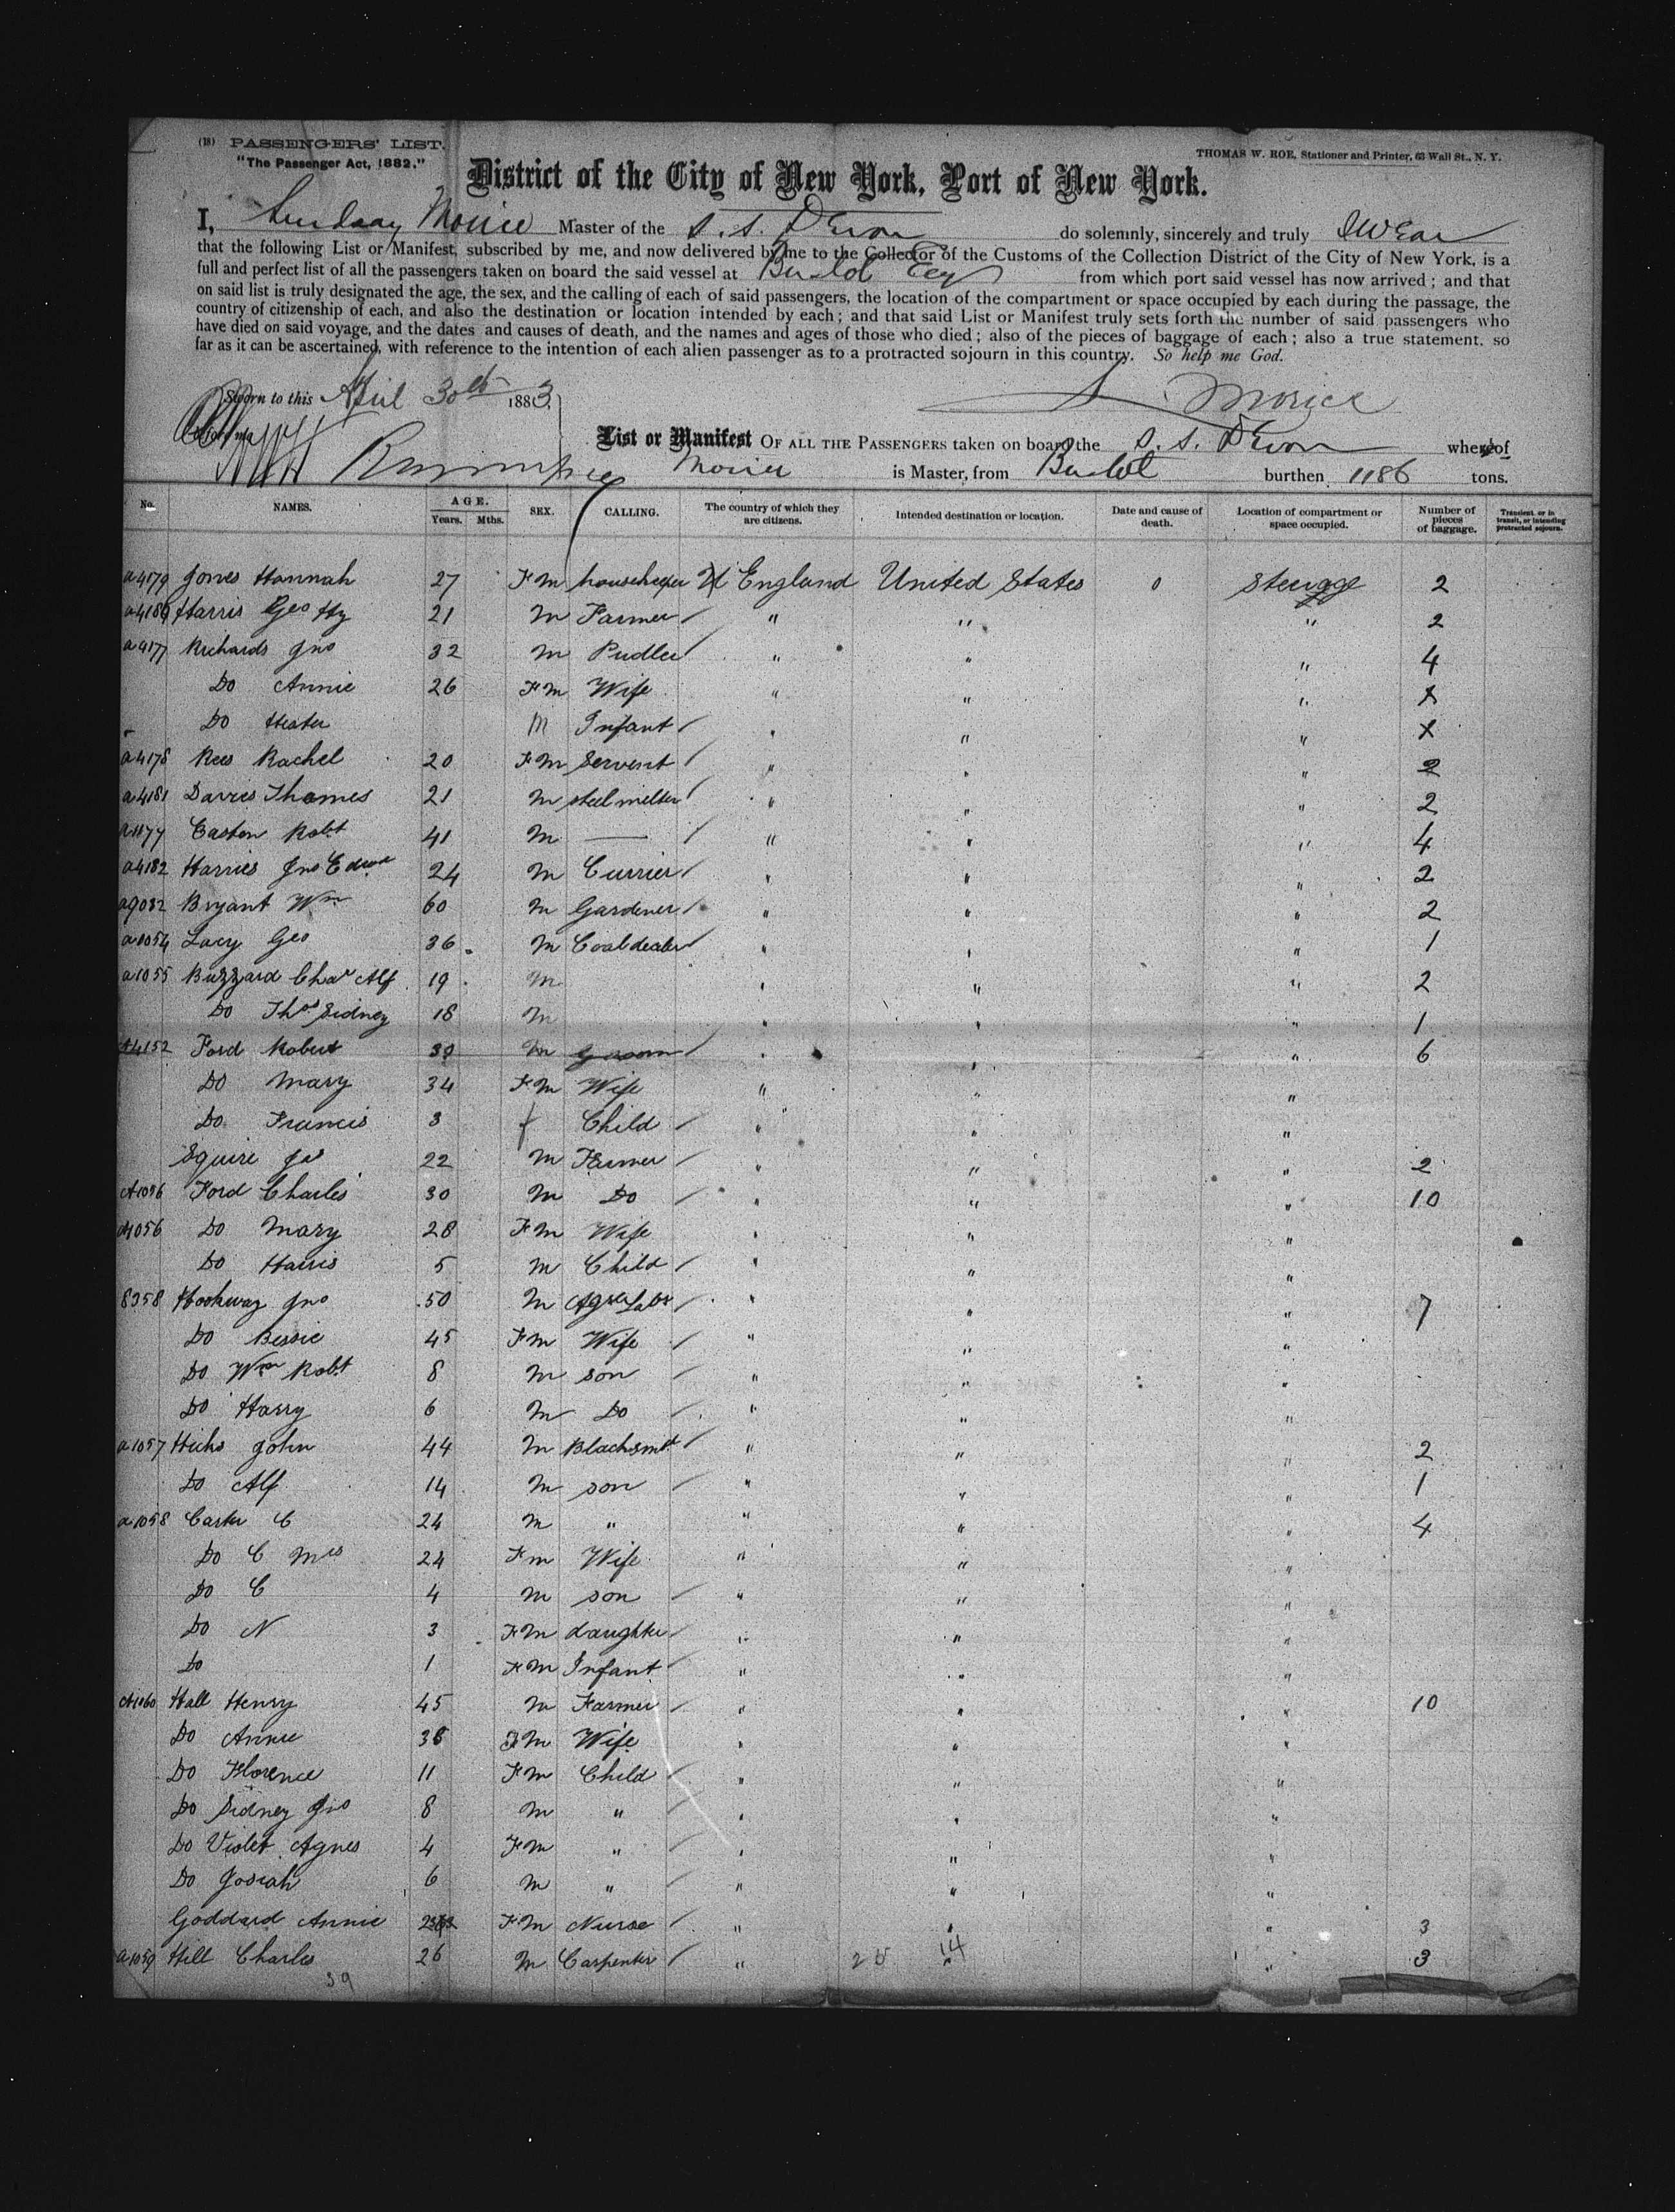 (18) PASSENGERS' LIST.
"The Passenger Act, 1882."
THOMAS W. ROE, Stationer and Printer, 63 Wall St., N. Y.
District of the City of New York, Port of New York.
I, Lindsay Morice Master of the S. S. Devon do solemnly, sincerely and truly swear
that the following List or Manifest, subscribed by me, and now delivered by me to the Collector of the Customs of the Collection District of the City of New York, is a
full and perfect list of all the passengers taken on board the said vessel at Bristol Eng from which port said vessel has now arrived; and that
on said list is truly designated the age, the sex, and the calling of each of said passengers, the location of the compartment or space occupied by each during the passage, the
country of citizenship of each, and also the destination or location intended by each; and that said List or Manifest truly sets forth the number of said passengers who
have died on said voyage, and the dates and causes of death, and the names and ages of those who died; also of the pieces of baggage of each; also a true statement, so
far as it can be ascertained, with reference to the intention of each alien passenger as to a protracted sojourn in this country. So help me God.
Sworn to this April 30th 1883. Morice
List or Manifest OF ALL THE PASSENGERS taken on board the S. S. Devon whereof
Morice is Master, from Bristol burthen 1186 tons.
No. NAMES. AGE. Years. Mths. SEX. CALLING. The country of which they are citizens. Intended destination or location. Date and cause of death. Location of compartment or space occupied. Number of pieces of baggage. Transient, or in transit, or intending protracted sojourn.
a4179 Jones Hannah 27 Fm housekeeper England United States 0 Steerage 2
a4180 Harris Geo Hy 21 m Farmer " " " 2
a4177 Richards Jno 32 m Pudler " " " 4
Do Annie 26 Fm Wife " " " X
Do Hester M Infant " " " X
a4178 Rees Rachel 20 Fm Servent " " " 2
a4181 Davies Thomas 21 m steel melter " " " 2
Caston Robt 41 m — " " " 4
a4182 Harries Jno Edwd 24 m Currier " " " 2
a9032 Bryant Wm 60 m Gardener " " " 2
a1054 Lacy Geo 36 m Coal dealer " " " 1
a1055 Buzzard Chas Alf 19 m " " " 2
Do Thos Sidney 18 m " " " 1
A4152 Ford Robert 39 m groom " " " 6
Do Mary 34 Fm Wife " " "
Do Francis 3 f Child " " "
Squire Jas 22 m Farmer " " " 2
A1056 Ford Charles 30 m Do " " " 10
A1056 Do Mary 28 Fm Wife " " "
Do Harris 5 m Child " " "
8358 Hookway Jno 50 m Agrl Labr " " " 7
Do Bessie 45 Fm Wife " " "
Do Wm Robt 8 m son " " "
Do Harry 6 m Do " " "
a1057 Hicks John 44 m Blacksmt " " " 2
Do Alf 14 m son " " " 1
a1058 Carter C 24 m " " " " 4
Do C Mrs 24 Fm Wife " " "
Do C 4 m son " " "
Do N 3 Fm daughter " " "
Do 1 Fm Infant " " "
A1060 Hall Henry 45 m Farmer " " " 10
Do Annie 38 Fm Wife " " "
Do Florence 11 Fm Child " " "
Do Sidney Jno 8 m " " " "
Do Violet Agnes 4 Fm " " " "
Do Josiah 6 m " " " "
Goddard Annie Fm Nurse " " " 3
a1059 Hill Charles 26 m Carpenter " " " 3
39 25 14